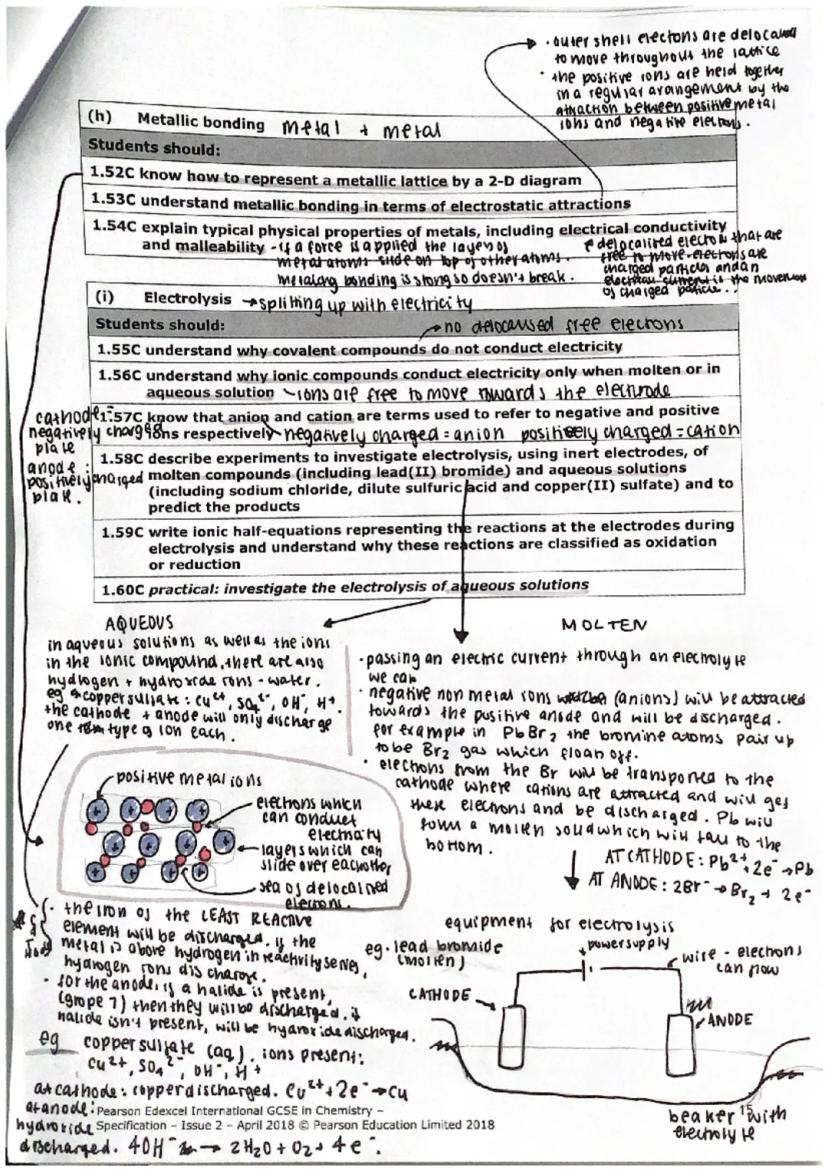 · outer shell electons are delocalised
to move throughout the lattice
· the positive ions are held together
in a regular arangement by the
attraction between positive metal
ions and negative electrons.
(h) Metallic bonding metal + metal
Students should:
1.52C know how to represent a metallic lattice by a 2-D diagram
1.53C understand metallic bonding in terms of electrostatic attractions
1.54C explain typical physical properties of metals, including electrical conductivity
and malleability - if a force is applied the layers of
metal atoms slide on top of other atoms.
bonding is stong so doesn't break.
delocalised electrons that are
free to move-electrons are
charged particles and an
electrical current is the movement
of charged particle.
(i) Electrolysis → splitting up with electricity
Students should:
→ no delocalised free electrons
1.55C understand why covalent compounds do not conduct electricity
1.56C understand why ionic compounds conduct electricity only when molten or in
aqueous solution - ions are free to move towards the electrode
1.57C know that anion and cation are terms used to refer to negative and positive
ions respectively negatively charged = anion positively charged = cation
cathode:
negatively charged
plate
anode:
positively charged
plate.
1.58C describe experiments to investigate electrolysis, using inert electrodes, of
molten compounds (including lead(II) bromide) and aqueous solutions
(including sodium chloride, dilute sulfuric acid and copper(II) sulfate) and to
predict the products
1.59C write ionic half-equations representing the reactions at the electrodes during
electrolysis and understand why these reactions are classified as oxidation
or reduction
1.60C practical: investigate the electrolysis of aqueous solutions
AQUEOUS
in aqueous solutions as well as the ions
in the ionic compound, there are also
hydrogen + hydroxide ions - water.
eg → copper sulfate: Cu²⁺, SO₄²⁻, OH⁻, H⁺.
the cathode + anode will only discharge
one type of ion each.
MOLTEN
· passing an electric current through an electrolyte
we can
· negative non metal ions (anions) will be attracted
towards the positive anode and will be discharged.
for example in PbBr₂ the bromine atoms pair up
to be Br₂ gas which float off.
· electrons from the Br will be transported to the
cathode where cations are attracted and will get
these electrons and be discharged. Pb will
form a molten solid which will fall to the
bottom.
AT CATHODE: Pb²⁺ + 2e⁻ → Pb
AT ANODE: 2Br⁻ → Br₂ + 2e⁻
positive metal ions
electrons which
can conduct
electricity
layers which can
slide over eachother
sea of delocalised
electrons.
· the iron of the LEAST REACTIVE
element will be discharged. if the
metal is above hydrogen in reactivity series,
hydrogen ions discharge.
· for the anode, if a halide is present,
(grope 7) then they will be discharged. if
halide isn't present, will be hydroxide discharged.
eg copper sulfate (aq). ions present:
Cu²⁺, SO₄²⁻, OH⁻, H⁺
at cathode: copper discharged. Cu²⁺ + 2e⁻ → Cu
at anode:
hydroxide
discharged. 4OH⁻ → 2H₂O + O₂ + 4e⁻.
equipment for electrolysis
eg. lead bromide
(molten)
power supply
wire - electrons
can flow
CATHODE
ANODE
beaker with
electrolyte
Pearson Edexcel International GCSE in Chemistry –
Specification – Issue 2 – April 2018 © Pearson Education Limited 2018
15